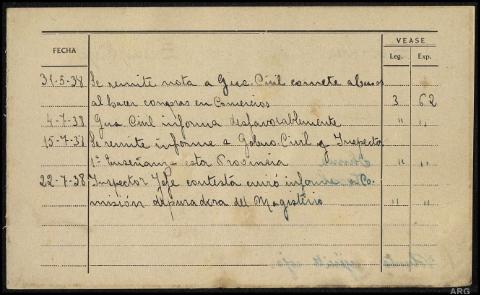 VEASE
FECHA
Leg. Exp.
31-5-38 Se remite nota a Gua. Civil comete abusos
al hacer compras en Comercios 3 62
4-7-38 Gua Civil informa desfavorablemente " "
15-7-38 Se remite informe a Gobno. Civil y Inspector
1ª Enseñanza esta Provincia " "
22-7-38 Inspector Jefe contesta envió informe a Co-
misión depuradora del Magisterio " "
ARG